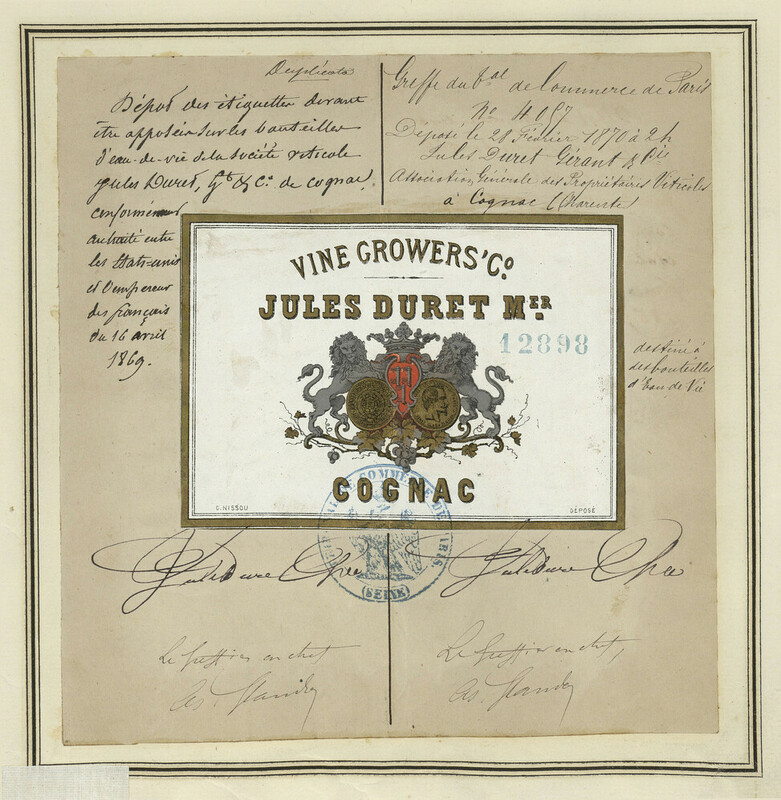 Duplicata
Dépôt des étiquettes devant
être apposées sur les bouteilles
d'eau-de-vie de la Société viticole
Jules Duret, Gt & Co. de cognac,
conformément
au traité entre
les États-unis
et l'empereur
des français
du 16 avril
1869.
Greffe du bal de Commerce de Paris
No 4057
Déposé le 28 Février 1870 à 2h
Jules Duret Gérant & Cie
Association Générale des Propriétaires Viticoles
à Cognac (Charente)
VINE GROWERS' Co.
JULES DURET MER.
12898
COGNAC
C. NISSOU
DÉPOSÉ
destiné à
des bouteilles
d'Eau de Vie
TRIBUNAL DE COMMERCE DE PARIS
(SEINE)
Jules Duret
Jules Duret
Le greffier en chef
Le greffier en chef,